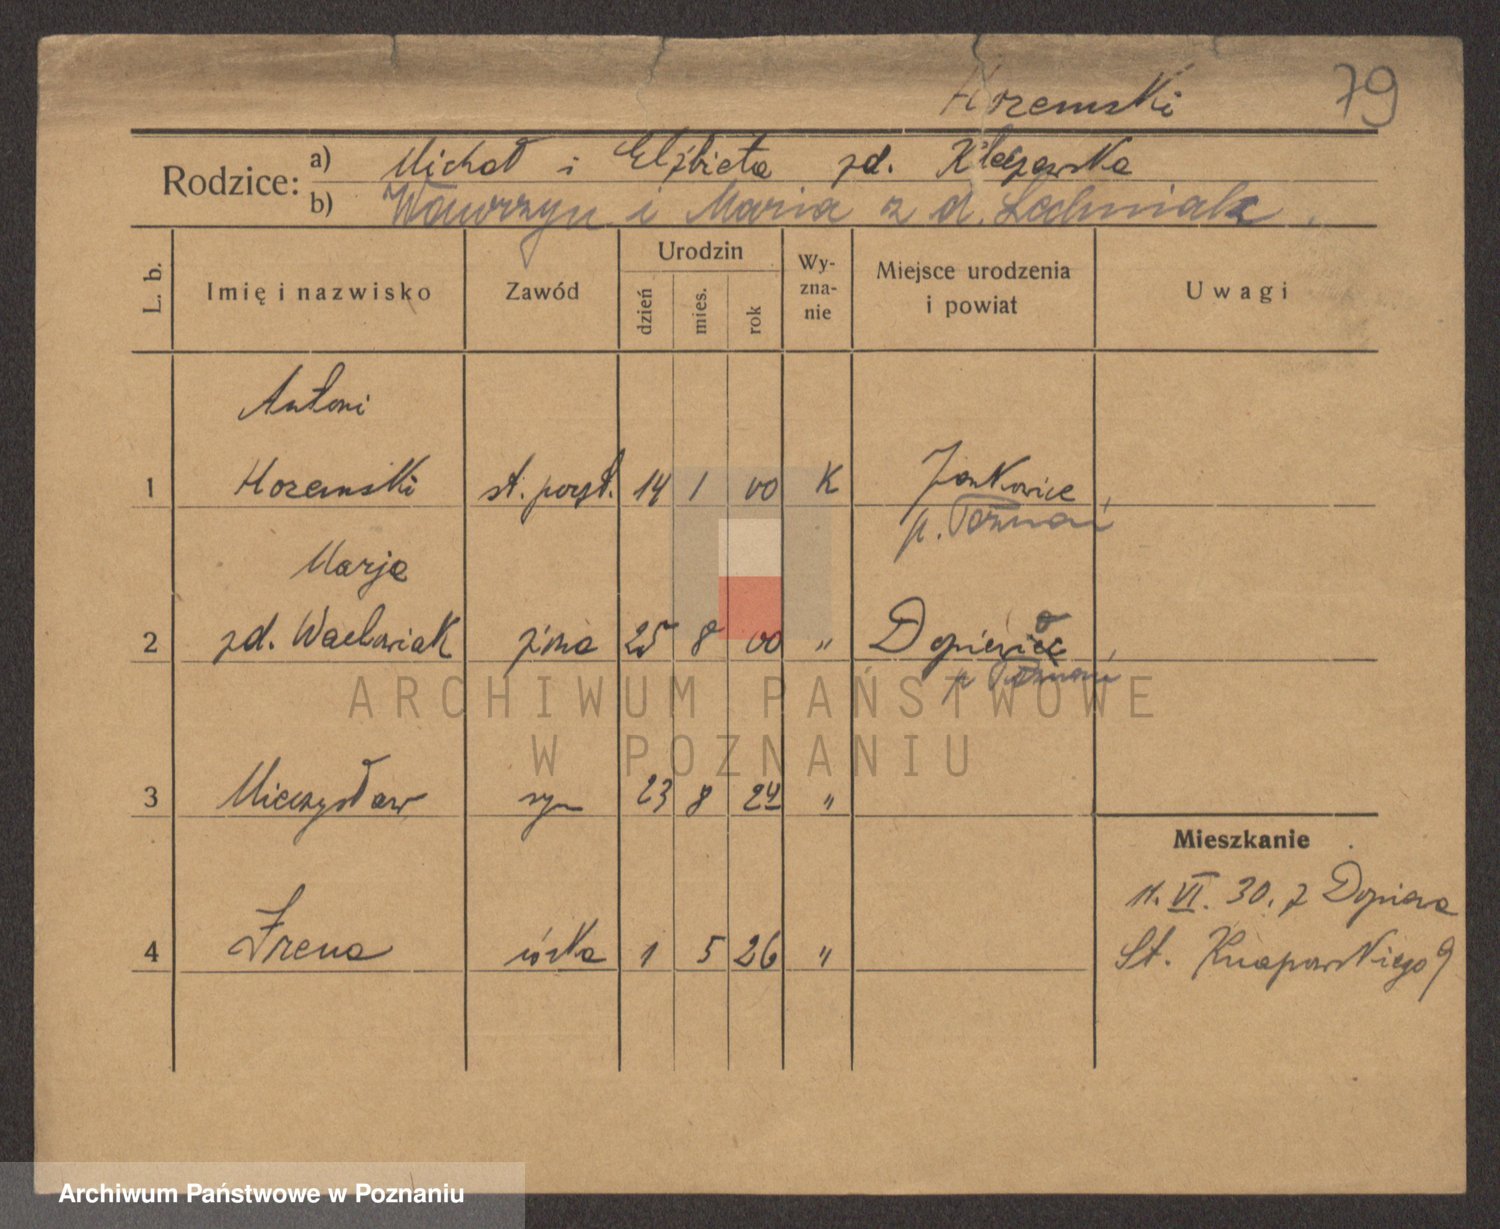 Hozemski 79
Rodzice: a) Michał i Elżbieta zd.
b) Wawrzyn i Maria z d. Lachniak.
L. b. Imię i nazwisko Zawód Urodzin dzień mies. rok Wy-zna-nie Miejsce urodzenia i powiat Uwagi
Antoni
1 Hozemski st. post. 14 1 00 K Jankowice,
p. Poznań
Marja
2 zd. Wachowiak żona 25 8 00 " Dopiewiec,
p. Poznań
ARCHIWUM PAŃSTWOWE
W POZNANIU
3 Mieczysław syn 23 8 24 "
Mieszkanie
11. VI. 30. z Dopiewa
4 Irena córka 1 5 26 " St. Knapowskiego 9
Archiwum Państwowe w Poznaniu